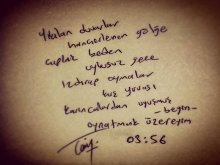 Yıkılan duvarlar
hançerlenen gölge
çıplak beden
uykusuz gece
Izdırap aynalar
kuş yuvası
karıncalardan uyuşmuş
- beyin -
oynatmak üzereyim
03:56